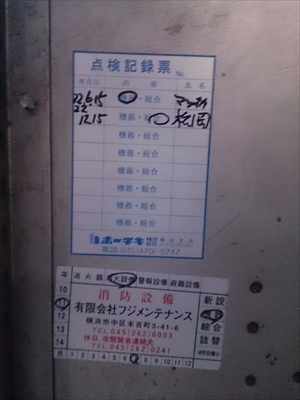 点検記録票
No.
年月日 内容 氏名
22.6.15 機器・総合
22.12.15 機器・ 松岡
機器・総合
機器・総合
機器・総合
機器・総合
機器・総合
機器・総合
ホーチキ 株式会社
電話 045(470)-5747
年 消火器 消火設備 警報設備 避難設備
10 消防設備 新設
11 有限会社フジメンテナンス 機器
12 横浜市中区末吉町3-41-6 総合
13 TEL 045(262)0003 詰替
休日、夜間緊急連絡先
14 TEL 045(262)0241
月 1 2 3 4 5 6 7 8 9 10 11 12